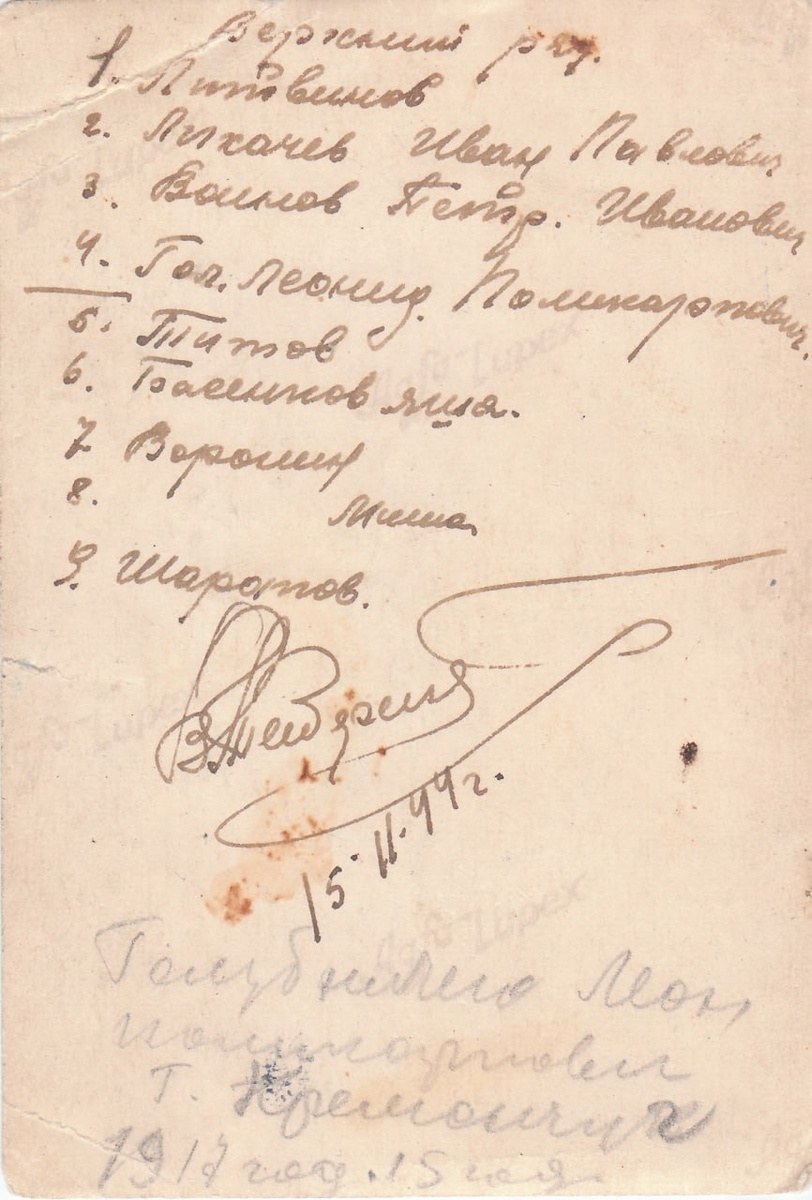 Верхний ряд.
1. Литвинов
2. Лихачев Иван Павлович
3. Воинов Петр. Иванович
4. Гол. Леонид. Поликарпович.
5. Титов
6. Басенков яша.
7 Воронин
8. Миша
9. Шарапов.
15.11.44 г.
Леон
поликарпович
г. Кременчуг
1917 год. 15